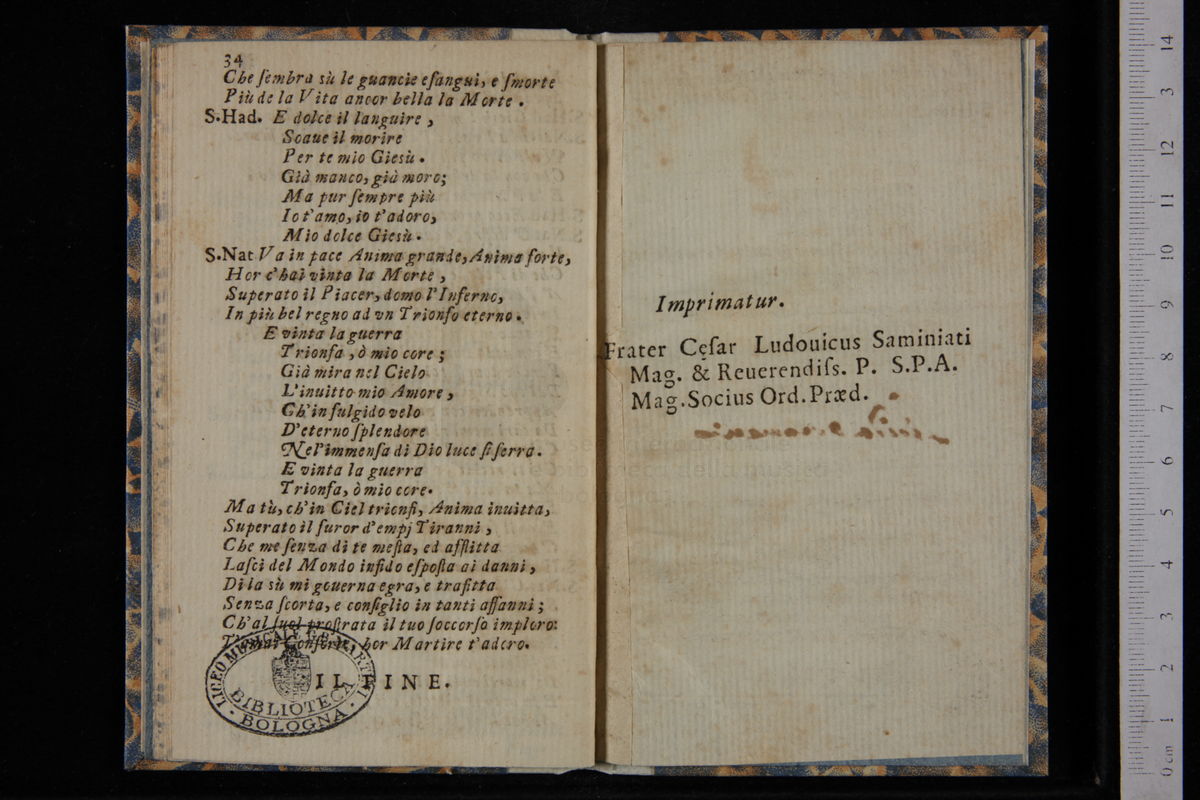 34
Che ſembra sù le guancie eſangui, e ſmorte
Più de la Vita ancor bella la Morte.
S.Had. E dolce il languire,
Soaue il morire
Per te mio Giesù.
Già manco, già moro;
Ma pur ſempre più
Io t'amo, io t'adoro,
Mio dolce Giesù.
S.Nat Va in pace Anima grande, Anima forte,
Hor c'hai vinta la Morte,
Superato il Piacer, domo l'Inferno,
In più bel regno ad vn Trionfo eterno.
E vinta la guerra
Trionfa, ò mio core;
Già mira nel Cielo
L'inuitto mio Amore,
Ch'in fulgido velo
D'eterno ſplendore
Nel'immenſa di Dio luce ſi ſerra.
E vinta la guerra
Trionfa, ò mio core.
Ma tù, ch'in Ciel trionfi, Anima inuitta,
Superato il furor d'empj Tiranni,
Che me ſenza di te meſta, ed afflitta
Laſci del Mondo infido eſpoſta ai danni,
Di la sù mi gouerna egra, e trafitta
Senza ſcorta, e conſiglio in tanti affanni;
Ch'al ſuol proſtrata il tuo ſoccorſo imploro:
T'amai Conſorte, hor Martire t'adoro.
IL FINE.
LICEO MUSICALE G.B. MARTINI
BIBLIOTECA
BOLOGNA
Imprimatur.
Frater Cęſar Ludouicus Saminiati
Mag. & Reuerendiſs. P. S.P.A.
Mag. Socius Ord. Præd.
0 cm 1 2 3 4 5 6 7 8 9 10 11 12 3 14